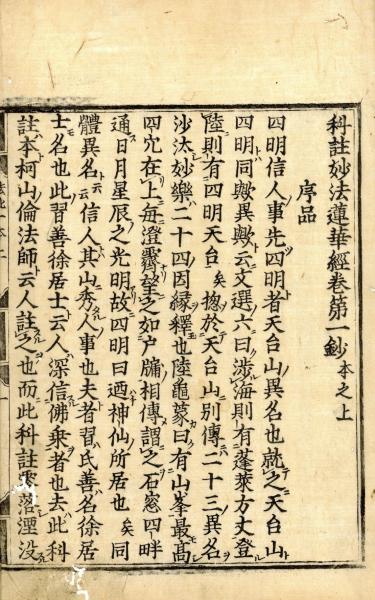 科註妙法蓮華經卷第一鈔 本之上
序品
四明信人事先四明者天台山異名也就之天台山
四明同歟異歟云文選六曰涉海則有蓬萊方丈登
陸則有四明天台矣揔於天台山別傳二十三異名
沙汰妙樂二十四因縁釋也陸龜蒙曰有山峯最高
四穴在上每澄霽望之如戶牖相傳謂之石窓四畔
通日月星辰之光明故四明曰迺神仙所居也矣同
體異名云信人其山秀人事也夫者習氏善名徐居
士名也此習善徐居士云人深信佛乘者也去此科
註本柯山倫法師云人註之也而此科註零落湮没